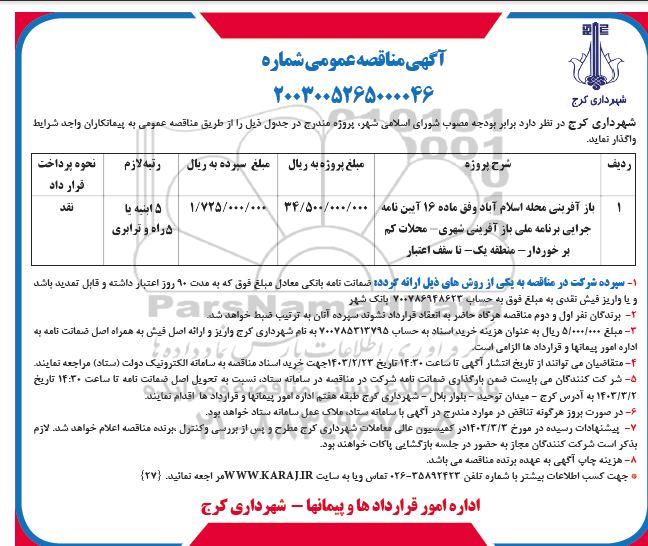 آگهی مناقصه عمومی شماره
۲۰۰۳۰۰۵۲۶۵۰۰۰۰۴۶
شهرداری کرج
شهرداری کرج در نظر دارد برابر بودجه مصوب شورای اسلامی شهر، پروژه مندرج در جدول ذیل را از طریق مناقصه عمومی به پیمانکاران واجد شرایط
واگذار نماید.
ردیف شرح پروژه مبلغ پروژه به ریال مبلغ سپرده به ریال رتبه لازم نحوه پرداخت
قرار داد
۱ باز آفرینی محله اسلام آباد وفق ماده ۱۶ آیین نامه ۳۴/۵۰۰/۰۰۰/۰۰۰ ۱/۷۲۵/۰۰۰/۰۰۰ ۵ ابنیه یا نقد
جرایی برنامه ملی باز آفرینی شهری – محلات کم ۵راه و ترابری
بر خوردار– منطقه یک– تا سقف اعتبار
۱- سپرده شرکت در مناقصه به یکی از روش های ذیل ارائه گردد: ضمانت نامه بانکی معادل مبلغ فوق که به مدت ۹۰ روز اعتبار داشته و قابل تمدید باشد
و یا واریز فیش نقدی به مبلغ فوق به حساب ۷۰۰۷۸۶۹۴۸۶۲۳ بانک شهر
۲- برندگان نفر اول و دوم مناقصه هرگاه حاضر به انعقاد قرارداد نشوند سپرده آنان به ترتیب ضبط خواهد شد.
۳- مبلغ ۵/۰۰۰/۰۰۰ ریال به عنوان هزینه خرید اسناد به حساب ۷۰۰۷۸۵۳۱۳۷۹۵ به نام شهرداری کرج واریز و ارائه اصل فیش به همراه اصل ضمانت نامه به
اداره امور پیمانها و قراردادها الزامی است.
۴- متقاضیان می توانند از تاریخ انتشار آگهی تا ساعت ۱۴:۳۰ تاریخ ۱۴۰۳/۲/۲۳جهت خرید اسناد مناقصه به سامانه الکترونیک دولت (ستاد) مراجعه نمایند.
۵- شر کت کنندگان می بایست ضمن بارگذاری ضمانت نامه شرکت در مناقصه در سامانه ستاد، نسبت به تحویل اصل ضمانت نامه تا ساعت ۱۴:۳۰ تاریخ
۱۴۰۳/۳/۲ به آدرس کرج – میدان توحید – بلوار بلال – شهرداری کرج طبقه هفتم اداره امور پیمانها و قرارداد ها اقدام نمایند.
۶- در صورت بروز هرگونه تناقض در موارد مندرج در آگهی با سامانه ستاد، ملاک عمل سامانه ستاد خواهد بود.
۷- پیشنهادات رسیده در مورخ ۱۴۰۳/۳/۳در کمیسیون عالی معاملات شهرداری کرج مطرح و پس از بررسی وکنترل ،برنده مناقصه اعلام خواهد شد. لازم
بذکر است شرکت کنندگان مجاز به حضور در جلسه بازگشایی پاکات خواهند بود.
۸- هزینه چاپ آگهی به عهده برنده مناقصه می باشد.
* جهت کسب اطلاعات بیشتر با شماره تلفن ۳۵۸۹۲۴۲۳-۰۲۶ تماس ویا به سایت WWW.KARAJ.IRمر اجعه نمائید. {۲۷}
اداره امور قرارداد ها و پیمانها – شهرداری کرج
ParsNamadData